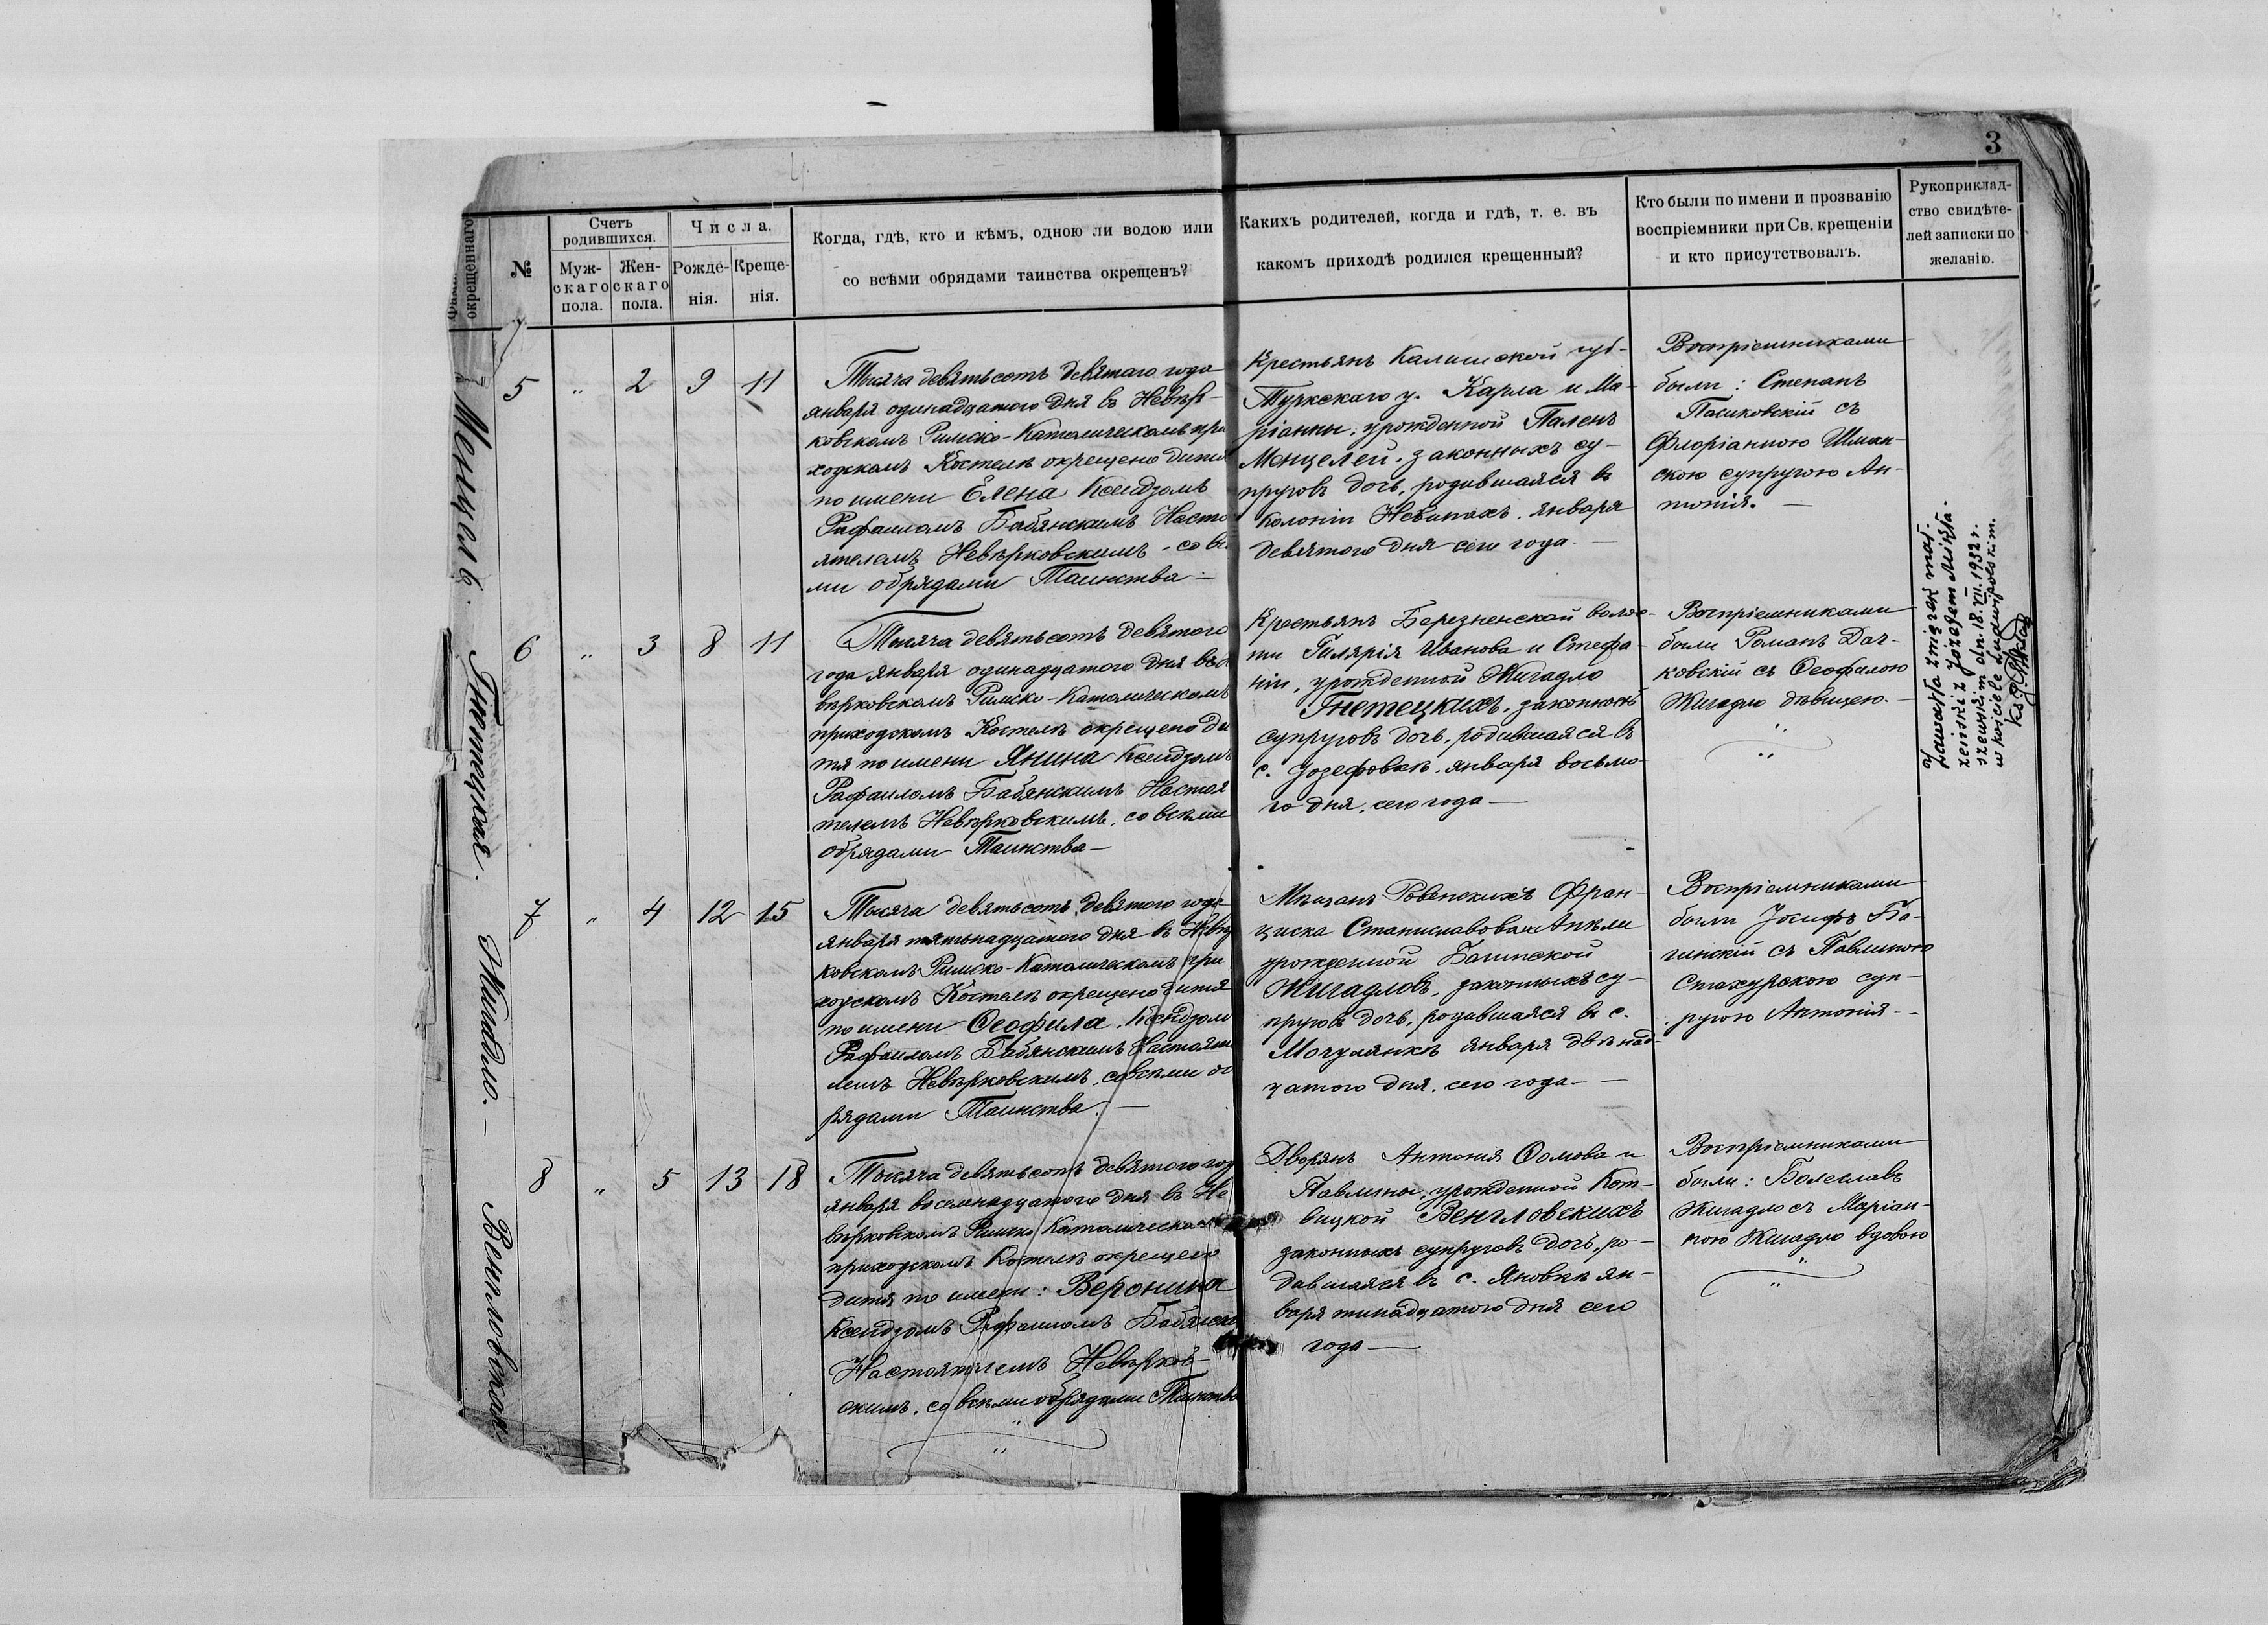 3
окрещеннаго
№
Счетъ родившихся.
Муж-
скаго
пола.
Жен-
скаго
пола.
Числа.
Рожде-
нія.
Креще-
нія.
Когда, гдѣ, кто и кѣмъ, одною ли водою или
со всѣми обрядами таинства окрещенъ?
Какихъ родителей, когда и гдѣ, т. е. въ
какомъ приходѣ родился крещенный?
Кто были по имени и прозванію
воспріемники при Св. крещеніи
и кто присутствовалъ.
Рукоприклад-
ство свидѣте-
лей записки по
желанію.
Менцель.
5 " 2 9 11
Тысяча девятьсотъ девятаго года
января одинадцатого дня въ Невѣр-
ковскомъ Римско-Католическомъ при
ходскомъ Костелѣ окрещено дитя
по имени Елена Ксендзомъ
Рафаиломъ Бабянскимъ Насто
ятелемъ Невѣрковскимъ, со всѣ
ми обрядами Таинства
Крестьянъ Калишской губ-
Туркскаго у. Карла и Ма-
ріанны, урожденной Паленъ
Менцелей, законныхъ су-
пруговъ дочь, родившаяся въ
колоніи января
девятого дня сего года.
Воспріемниками
были: Степанъ
Пашковскій съ
Флоріанною Шман-
скою супругою Ан-
тонія.
Гнетецкая.
6 " 3 8 11
Тысяча девятьсотъ девятого
года января одинадцатого дня въ Не
вѣрковскомъ Римско-Католическомъ
приходскомъ Костелѣ окрещено ди
тя по имени Янина Ксендзомъ
Рафаиломъ Бабянскимъ Настоя
телемъ Невѣрковскимъ, со всѣми
обрядами Таинства
Крестьянъ Березненской волос-
ти Гилярія Иванова и Стефа-
ніи, урожденной Жигадло
Гнетецкихъ, законныхъ
супруговъ дочь, родившаяся въ
с. Юзефовкѣ, января восьмо-
го дня, сего года
Воспріемниками
были Романъ Дач-
ковскій съ Ѳеофилою
Жигадло дѣвицею.
Zawarła związek mał-
żeński z Józefem
szewskim dn. 18.VII.1932 r.
w kościele ludwipolskim.
Жигадло.
7 " 4 12 15
Тысяча девятьсотъ девятого года
января пятьнадцатого дня въ Невѣр
ковскомъ Римско-Католическомъ при
ходскомъ Костелѣ окрещено дитя
по имени Ѳеофила, Ксендзомъ
Рафаиломъ Бабянскимъ Настояте
лемъ Невѣрковскимъ, со всѣми об
рядами Таинства.
Мѣщанъ Ровенскихъ Фран-
циска Станиславова и Анѣли
урожденной Багинской
Жигадловъ, законныхъ су-
пруговъ дочь, родившаяся въ с.
Мочулянкѣ января двѣнад-
цатого дня, сего года.
Воспріемниками
были Іосифъ Ба-
гинскій съ Павлиною
Стахурскою суп-
ругою Антонія
Венгловская.
8 " 5 13 18
Тысяча девятьсотъ девятого год
января восемнадцатого дня въ Не
вѣрковскомъ Римско Католическомъ
приходскомъ Костелѣ окрещено
дитя по имени: Веронина
Ксендзомъ Рафаиломъ Бабянск
Настоятелемъ Невѣрков-
скимъ, со всѣми обрядами Таинства
Дворянъ Антонія Ѳомова и
Павлины, урожденной Кот-
вицкой Венгловскихъ
законныхъ супруговъ дочь, ро-
дившаяся въ с. Яновкѣ ян-
варя тинадцатого дня сего
года
Воспріемниками
были: Болеславъ
Жигадло съ Маріан-
ною Жигадло вдовою